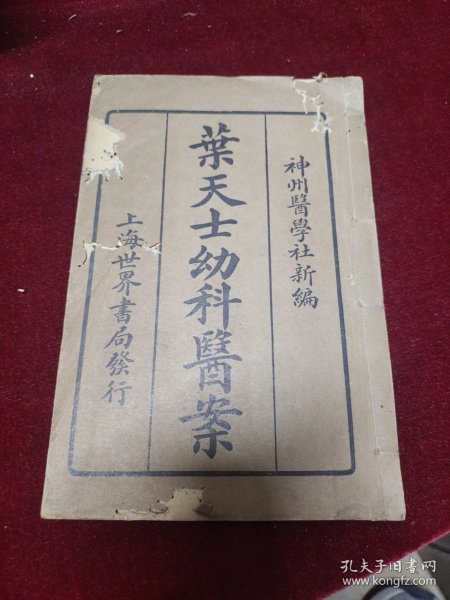 神州醫學社新編
葉天士幼科醫案
上海世界書局發行
孔夫子旧书网
www.kongfz.com